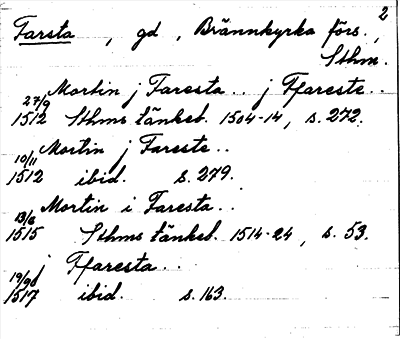 2
Farsta , gd , Brännkyrka förs.,
Sthm.
Mortin j Faresta .. j Ffareste ..
27/9
1512 Sthms tänkeb. 1504-14, s. 272.
Mortin j Fareste ..
10/11
1512 ibid. s. 279.
Mortin i Faresta ..
13/6
1515 Sthms tänkeb. 1514-24, s. 53.
j Ffaresta ..
19/90
1517 ibid. s. 163.